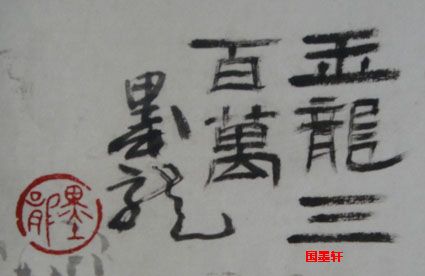 玉龍三
百萬
墨龍
墨龍
国墨轩